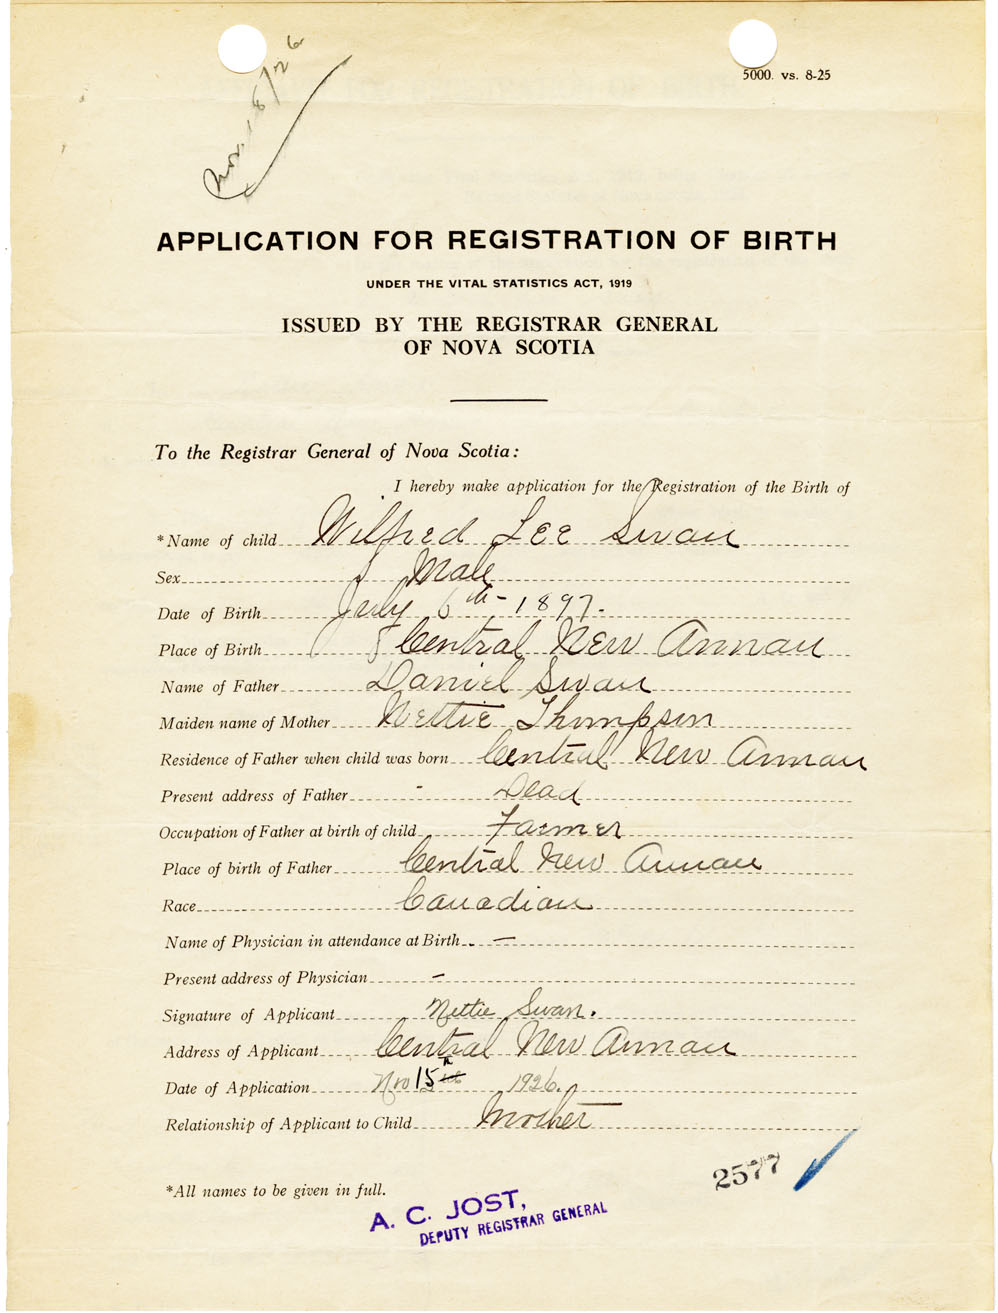 Nov. 18/26
5000. vs. 8-25
APPLICATION FOR REGISTRATION OF BIRTH
UNDER THE VITAL STATISTICS ACT, 1919
ISSUED BY THE REGISTRAR GENERAL
OF NOVA SCOTIA
To the Registrar General of Nova Scotia:
I hereby make application for the Registration of the Birth of
*Name of child Wilfred Lee Swan
Sex Male
Date of Birth July 6th - 1897.
Place of Birth Central New Annan
Name of Father Daniel Swan
Maiden name of Mother Nettie Thompson
Residence of Father when child was born Central New Annan
Present address of Father - Dead
Occupation of Father at birth of child Farmer
Place of birth of Father Central New Annan
Race Canadian
Name of Physician in attendance at Birth —
Present address of Physician —
Signature of Applicant Nettie Swan.
Address of Applicant Central New Annan
Date of Application Nov 15 1926.
Relationship of Applicant to Child Mother
2577
*All names to be given in full.
A. C. JOST,
DEPUTY REGISTRAR GENERAL